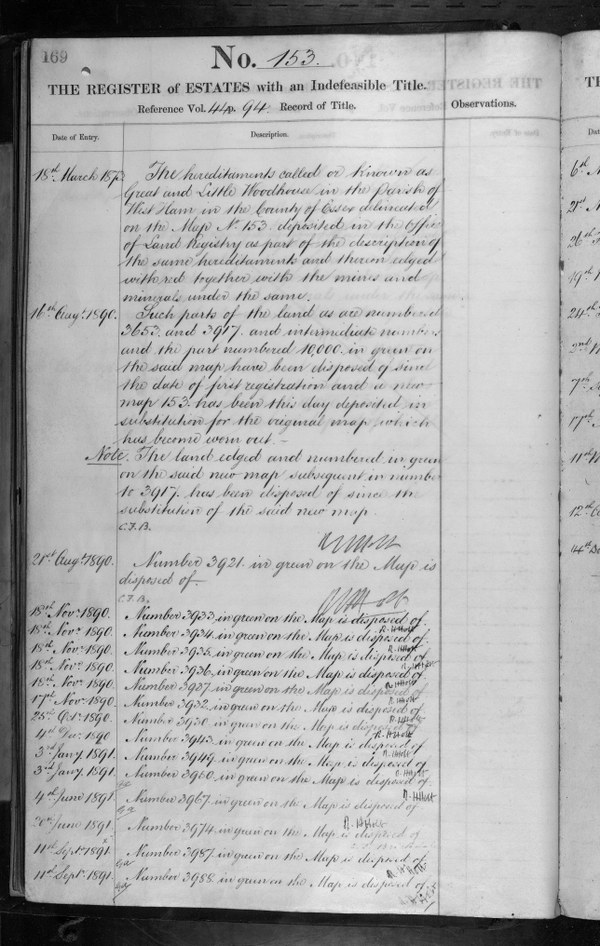 169
No. 153.
THE REGISTER of ESTATES with an Indefeasible Title.
Reference Vol. 44 p. 94. Record of Title.
Observations.
Date of Entry.
Description.
18th March 187
The hereditaments called or known as
Great and Little Woodhouse in the Parish of
West Ham in the County of Essex delineated
on the Map No 153 deposited in the Office
of Land Registry as part of the description of
the same hereditaments and thereon edged
with red together with the mines and
minerals under the same.
16th Augt. 1890.
Such parts of the land as are numbered
3653 and 3917. and intermediate numbers
and the part numbered 10,000. in green on
the said map have been disposed of since
the date of first registration and a new
map 153. has been this day deposited in
substitution for the original map which
has become worn out. –
Note. The land edged and numbered in green
on the said new map subsequent in number
to 3917. has been disposed of since the
substitution of the said new map.
C.F.B.
R H Holt
21st Augt. 1890.
Number 3921. in green on the Map is
disposed of
C.F.B.
R H Holt
18th Novr. 1890.
Number 3933 in green on the Map is disposed of.
R. H Holt
18th Novr. 1890.
Number 3934 in green on the Map is disposed of.
R. H Holt
18th Novr. 1890.
Number 3935 in green on the Map is disposed of.
R. H Holt
18th Novr. 1890.
Number 3936 in green on the Map is disposed of.
R. H Holt
18th Novr. 1890.
Number 3937 in green on the Map is disposed of.
R. H Holt
17th Novr. 1890.
Number 3932 in green on the Map is disposed of.
R. H Holt
28th Octr. 1890.
Number 3930 in green on the Map is disposed of
R. H Holt
4th Decr. 1890
Number 3943 in green on the Map is disposed of
3rd Jany. 1891.
Number 3949 in green on the Map is disposed of
3rd Jany. 1891.
Number 3950 in green on the Map is disposed of.
R. H Holt
4th June 1891.
Number 3967 in green on the Map is disposed of
R. H Holt
20th June 1891.
Number 3974 in green on the Map is disposed of
11th Septr. 1891.
Number 3987 in green on the Map is disposed of.
R. H Holt
11th Septr. 1891.
Number 3988 in green on the Map is disposed of.